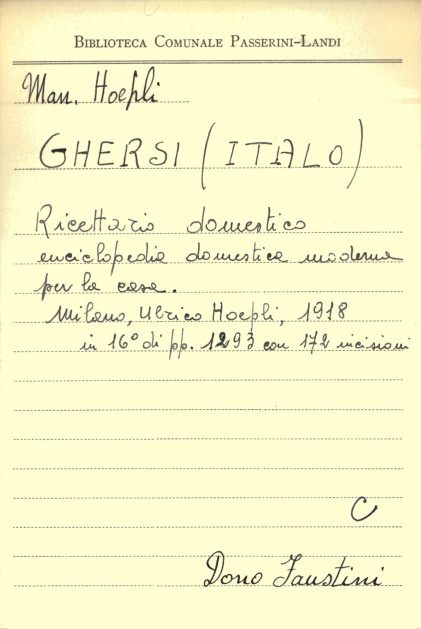 BIBLIOTECA COMUNALE PASSERINI-LANDI
Man. Hoepli
GHERSI (ITALO)
Ricettario domestico
enciclopedia domestica moderna
per la casa.
Milano, Ulrico Hoepli, 1918
in 16° di pp. 1293 con 172 incisioni
C
Dono Faustini